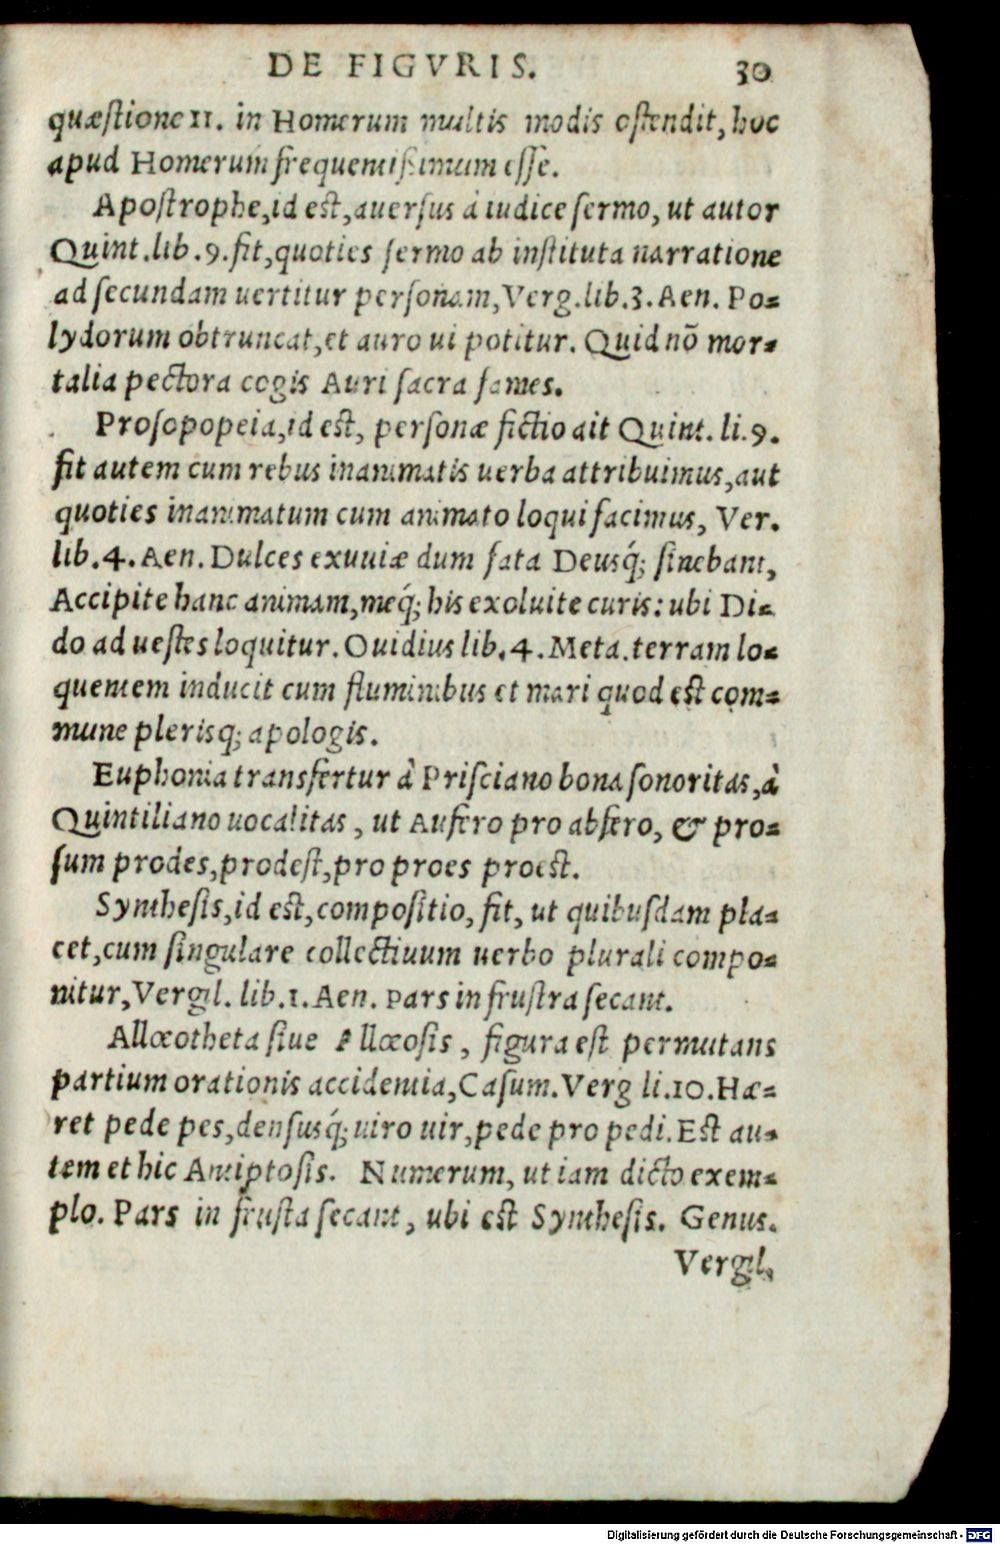 DE FIGVRIS. 30
quæſtione II. in Homerum multis modis oſtendit, hoc
apud Homerum frequentiſsimum eſſe.
Apoſtrophe, id eſt, auerſus à iudice ſermo, ut autor
Quint. lib. 9. fit, quoties ſermo ab inſtituta narratione
ad ſecundam uertitur perſonam, Verg. lib. 3. Aen. Po=
lydorum obtruncat, et auro ui potitur. Quid nō mor=
talia pectora cogis Auri ſacra fames.
Proſopopeia, id eſt, perſonæ fictio ait Quint. li. 9.
fit autem cum rebus inanimatis uerba attribuimus, aut
quoties inanimatum cum animato loqui facimus, Ver.
lib. 4. Aen. Dulces exuuiæ dum fata Deusq́; ſinebant,
Accipite hanc animam, meq́; his exoluite curis: ubi Di=
do ad ueſtes loquitur. Ouidius lib. 4. Meta. terram lo=
quentem inducit cum fluminibus et mari quod eſt com=
mune plerisq; apologis.
Euphonia transfertur à Priſciano bona ſonoritas, à
Quintiliano uocalitas, ut Aufero pro abfero, & pro=
ſum prodes, prodeſt, pro proes proeſt.
Syntheſis, id eſt, compoſitio, fit, ut quibuſdam pla=
cet, cum ſingulare collectiuum uerbo plurali compo=
nitur, Vergil. lib. 1. Aen. Pars in fruſtra ſecant.
Allœotheta ſiue Allœoſis, figura eſt permutans
partium orationis accidentia, Caſum. Verg li. 10. Hæ=
ret pede pes, denſusq́; uiro uir, pede pro pedi. Eſt au=
tem et hic Antiptoſis. Numerum, ut iam dicto exem=
plo. Pars in fruſta ſecant, ubi eſt Syntheſis. Genus.
Vergil,
Digitalisierung gefördert durch die Deutsche Forschungsgemeinschaft - DFG